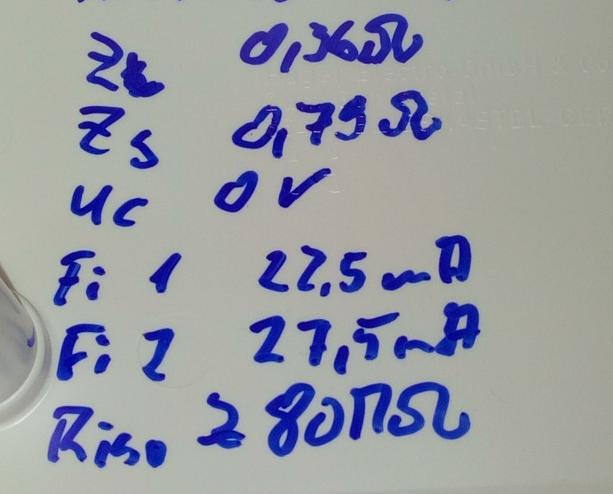 Zi 0,36Ω
Zs 0,79Ω
Uc 0V
Fi 1 22,5mA
Fi 2 27,5mA
Riso ≥ 80MΩ